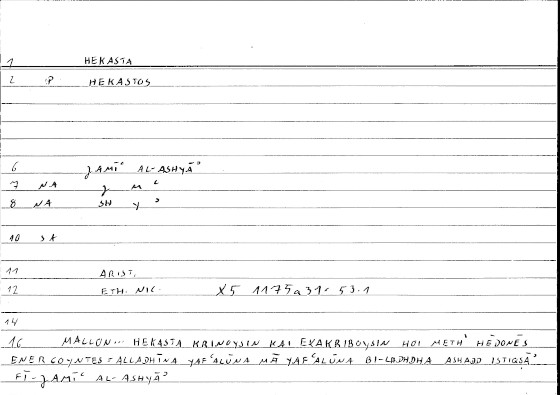 1 HEKASTA
2 P HEKASTOS
6 JAMĪʿ AL-ASHYĀʾ
7 NA J M ʿ
8 NA SH Y ʾ
10 SA
11 ARIST.
12 ETH. NIC. X5 1175a31= 53.1
14
16 MALLON... HEKASTA KRINOYSIN KAI EXAKRIBOYSIN HOI METH' HĒDONĒS
ENERGOYNTES=ALLADHĪNA YAFʿALŪNA MĀ YAFʿALŪNA BI-LADHDHA ASHADD ISTIQSĀʾ
FĪ-JAMĪʿ AL-ASHYĀʾ